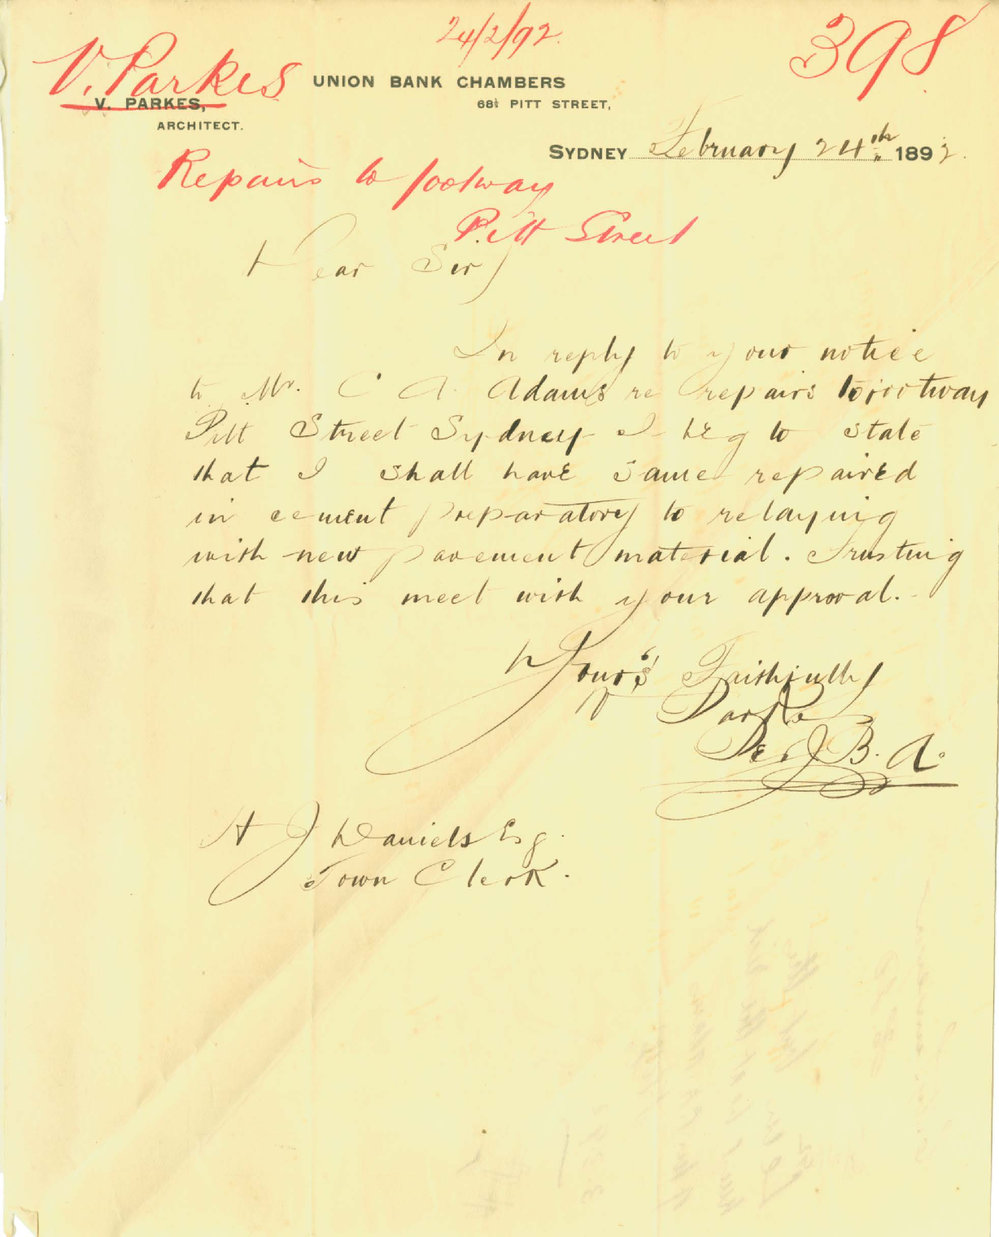 24/2/92.
398
V. Parkes
UNION BANK CHAMBERS
V. PARKES,
68½ PITT STREET,
ARCHITECT.
SYDNEY February 24th 1892.
Repairs to footway
Pitt Street
Dear Sir,
In reply to your notice
to Mr. C A Adams re repairs to footway
Pitt Street Sydney I beg to state
that I shall have same repaired
in cement preparatory to relaying
with new pavement material. Trusting
that this meet with your approval.-
Yours Faithfully
V Parkes
Per J. B. A.
H J Daniels Esq.
Town Clerk.